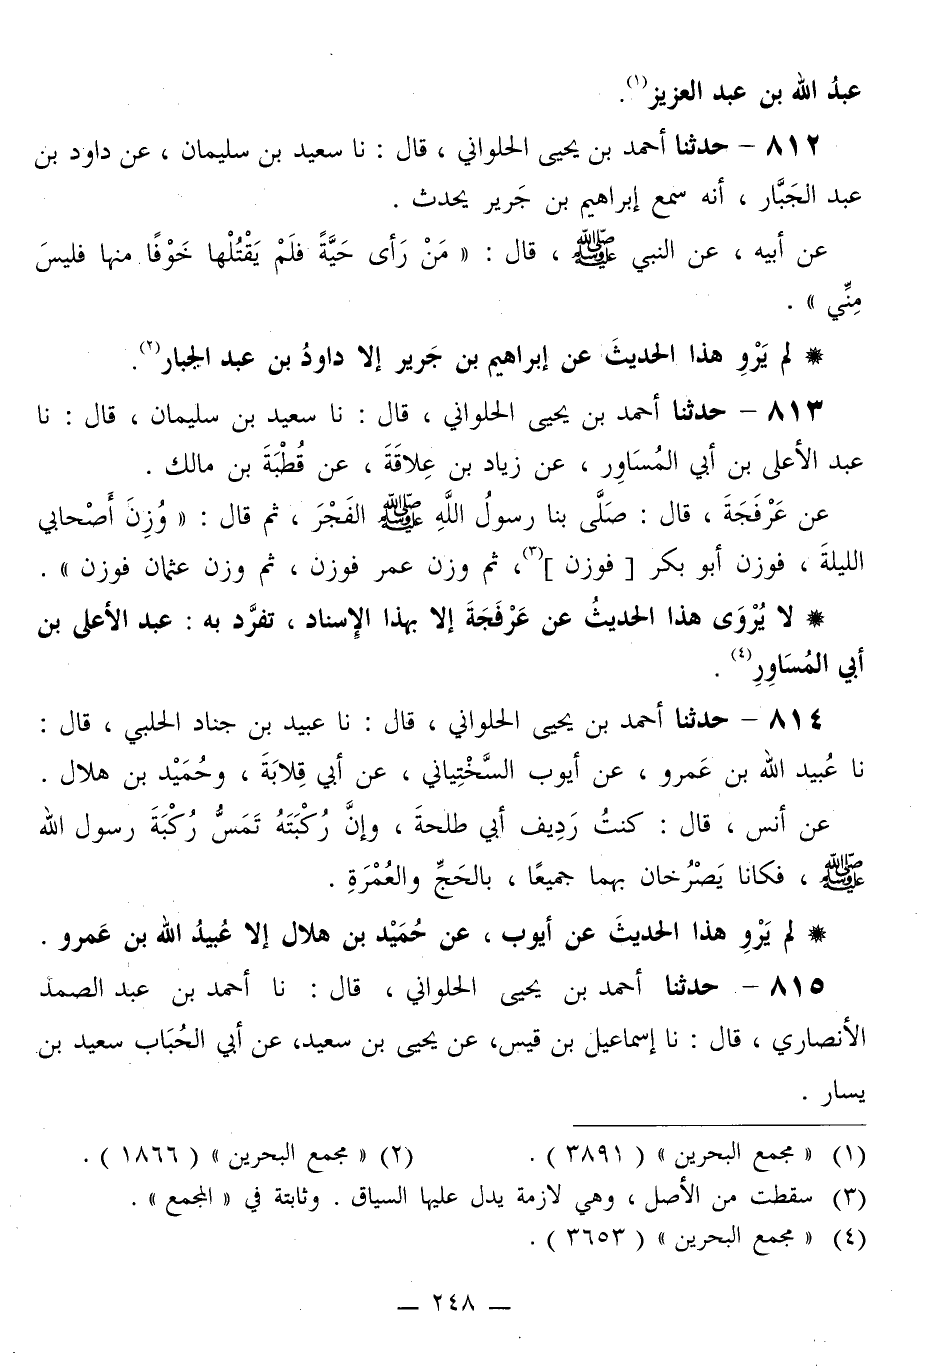 عبدُ الله بن عبد العزيز(١).
٨١٢ – حدثنا أحمد بن يحيى الحلواني ، قال : نا سعيد بن سليمان ، عن داود بن
عبد الجَبَّار ، أنه سمع إبراهيم بن جَرير يحدث .
عن أبيه ، عن النبي ﷺ ، قال : « مَنْ رَأى حَيَّةً فلَمْ يَقْتُلْها خَوْفًا منها فليسَ
مِنِّي » .
* لم يَرْوِ هذا الحديثَ عن إبراهيم بن جَرير إلا داودُ بن عبد الجبار(٢).
٨١٣ – حدثنا أحمد بن يحيى الحلواني ، قال : نا سعيد بن سليمان ، قال : نا
عبد الأعلى بن أبي المُسَاوِر ، عن زياد بن عِلاقَةَ ، عن قُطْبَةَ بن مالك .
عن عَرْفَجَةَ ، قال : صَلَّى بنا رسولُ اللَّهِ ﷺ الفَجْرَ ، ثم قال : « وُزِنَ أَصْحابي
الليلةَ ، فوزن أبو بكر [ فوزن ](٣)، ثم وزن عمر فوزن ، ثم وزن عثمان فوزن » .
* لا يُرْوَى هذا الحديثُ عن عَرْفَجَةَ إلا بهذا الإسناد ، تفرَّد به : عبد الأعلى بن
أبي المُسَاوِرِ(٤) .
٨١٤ – حدثنا أحمد بن يحيى الحلواني ، قال : نا عبيد بن جناد الحلبي ، قال :
نا عُبيد الله بن عَمرو ، عن أيوب السَّخْتِياني ، عن أبي قِلابَةَ ، وحُمَيْد بن هلال .
عن أنس ، قال : كنتُ رَدِيف أبي طلحةَ ، وإنَّ رُكْبَتَهُ تَمَسُّ رُكْبَةَ رسول الله
ﷺ ، فكانا يَصْرُخان بهما جميعًا ، بالحَجِّ والعُمْرَةِ .
* لم يَرْوِ هذا الحديثَ عن أيوب ، عن حُمَيْد بن هلال إلا عُبيدُ الله بن عَمرو .
٨١٥ – حدثنا أحمد بن يحيى الحلواني ، قال : نا أحمد بن عبد الصمد
الأنصاري ، قال : نا إسماعيل بن قيس، عن يحيى بن سعيد، عن أبي الحُبَاب سعيد بن
يسار .
(١) « مجمع البحرين » ( ٣٨٩١ ) . (٢) « مجمع البحرين » ( ١٨٦٦ ) .
(٣) سقطت من الأصل ، وهي لازمة يدل عليها السياق . وثابتة في « المجمع » .
(٤) « مجمع البحرين » ( ٣٦٥٣ ) .
— ٢٤٨ —